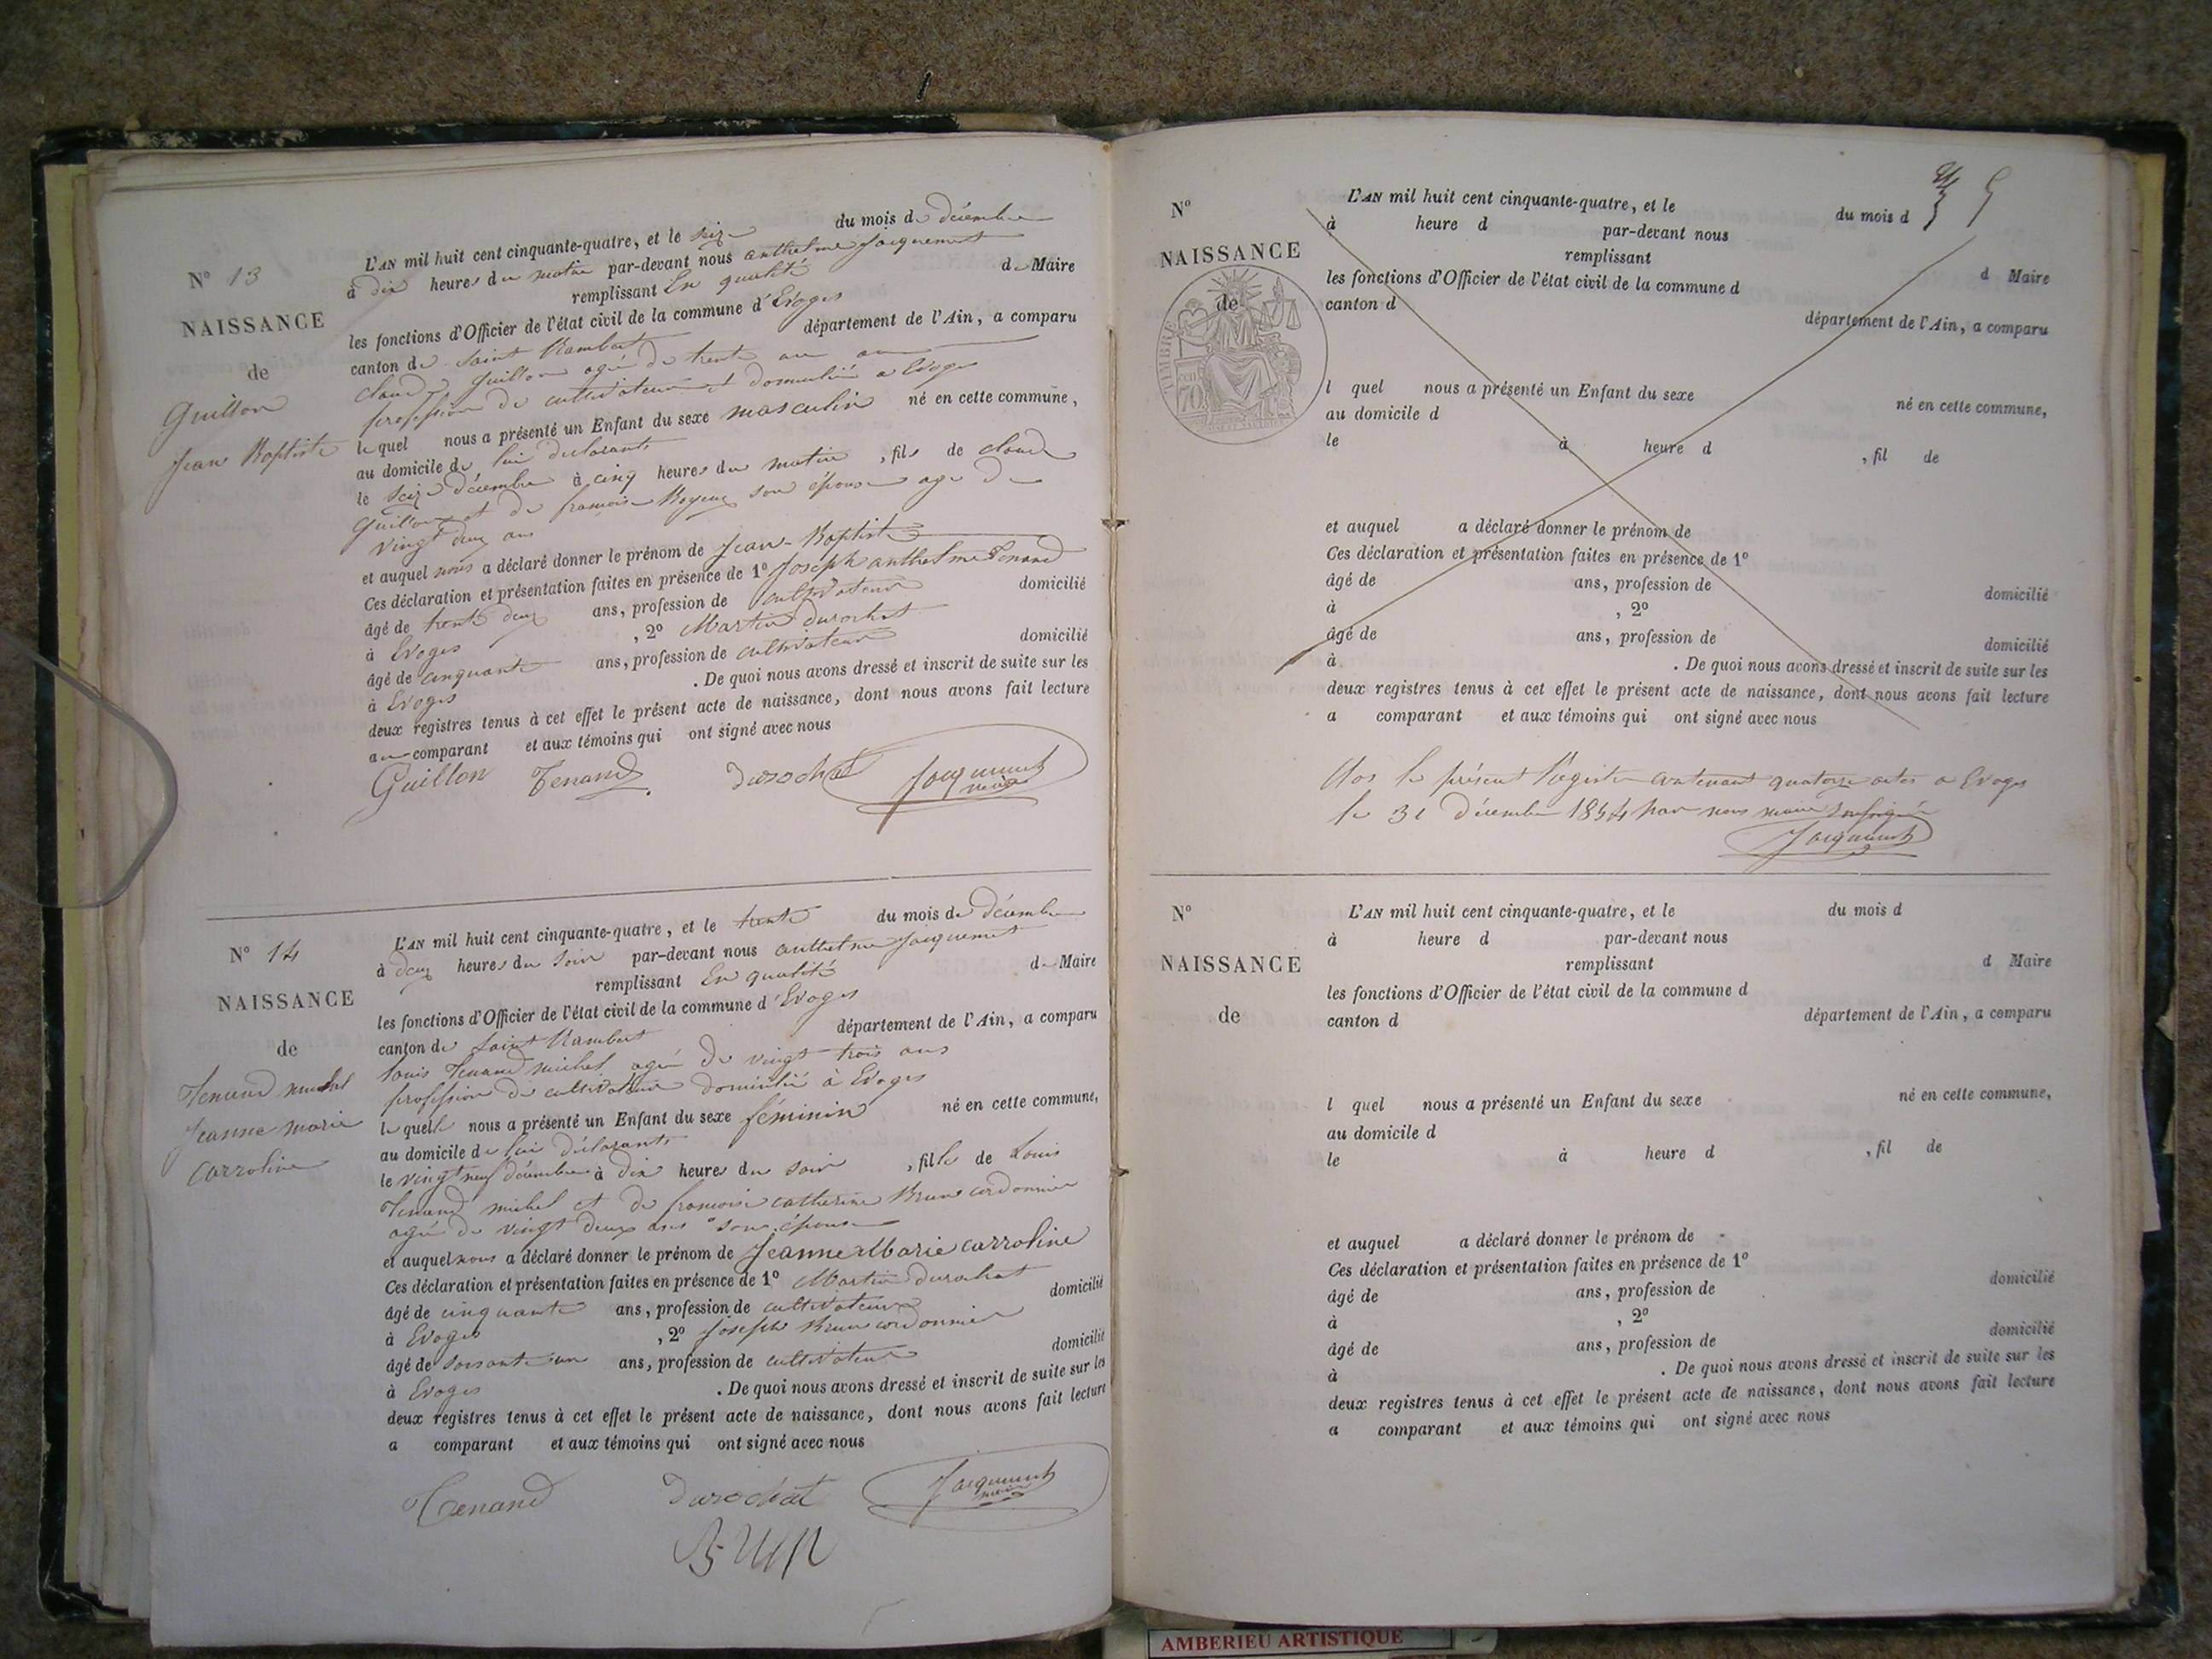 N° 13
NAISSANCE
de
Guillon
Jean Baptiste
L'AN mil huit cent cinquante-quatre, et le seize du mois de décembre
à dix heures du matin par-devant nous anthelme Jacquemet
remplissant En qualité de Maire
les fonctions d'Officier de l'état civil de la commune d'Evoges
canton de Saint Rambert département de l'Ain, a comparu
claude guillon agé de trente un ans
profession de cultivateur et domicilié a Evoges
le quel nous a présenté un Enfant du sexe masculin né en cette commune,
au domicile de lui déclarants
le seize décembre à cinq heures du matin, fils de claude
Guillon et de francoise son épouse age de
vingt deux ans
et auquel nous a déclaré donner le prénom de Jean-Baptiste
Ces déclaration et présentation faites en présence de 1° Joseph anthelme Tenand
âgé de trente deux ans, profession de cultivateur domicilié
à Evoges, 2° Martin durochat
âgé de cinquante ans, profession de cultivateur domicilié
à Evoges. De quoi nous avons dressé et inscrit de suite sur les
deux registres tenus à cet effet le présent acte de naissance, dont nous avons fait lecture
au comparant et aux témoins qui ont signé avec nous
Guillon Tenand durochat Jacquemet
maire
N° 14
NAISSANCE
de
Tenand michel
Jeanne marie
carroline
L'AN mil huit cent cinquante-quatre, et le trente du mois de décembre
à deux heures du soir par-devant nous anthelme Jacquemet
remplissant En qualité de Maire
les fonctions d'Officier de l'état civil de la commune d'Evoges
canton de Saint Rambert département de l'Ain, a comparu
louis Tenand michel agé de vingt trois ans
profession de cultivateur domicilié à Evoges
le quel nous a présenté un Enfant du sexe féminin né en cette commune,
au domicile de lui déclarants
le vingt neuf décembre à dix heures du soir, fille de Louis
Tenand michel et de francoise catherine Brun cordonnier
agée de vingt deux ans son épouse
et auquel nous a déclaré donner le prénom de Jeanne Marie carroline
Ces déclaration et présentation faites en présence de 1° Martin durochat
âgé de cinquante ans, profession de cultivateur domicilié
à Evoges, 2° Joseph Brun cordonnier
âgé de soixante un ans, profession de cultivateur domicilié
à Evoges. De quoi nous avons dressé et inscrit de suite sur les
deux registres tenus à cet effet le présent acte de naissance, dont nous avons fait lecture
a comparant et aux témoins qui ont signé avec nous
Tenand durochat Jacquemet
maire
Brun
5
N°
NAISSANCE
de
TIMBRE
70
L'AN mil huit cent cinquante-quatre, et le du mois d
à heure d par-devant nous
remplissant d Maire
les fonctions d'Officier de l'état civil de la commune d
canton d département de l'Ain, a comparu
l quel nous a présenté un Enfant du sexe né en cette commune,
au domicile d
le à heure d, fil de
et auquel a déclaré donner le prénom de
Ces déclaration et présentation faites en présence de 1°
âgé de ans, profession de domicilié
à, 2°
âgé de ans, profession de domicilié
à. De quoi nous avons dressé et inscrit de suite sur les
deux registres tenus à cet effet le présent acte de naissance, dont nous avons fait lecture
a comparant et aux témoins qui ont signé avec nous
Clos le présent Registre contenant quatorze actes a Evoges
le 31 décembre 1854 par nous maire soussigné
Jacquemet
N°
NAISSANCE
de
L'AN mil huit cent cinquante-quatre, et le du mois d
à heure d par-devant nous
remplissant d Maire
les fonctions d'Officier de l'état civil de la commune d
canton d département de l'Ain, a comparu
l quel nous a présenté un Enfant du sexe né en cette commune,
au domicile d
le à heure d, fil de
et auquel a déclaré donner le prénom de
Ces déclaration et présentation faites en présence de 1°
âgé de ans, profession de domicilié
à, 2°
âgé de ans, profession de domicilié
à. De quoi nous avons dressé et inscrit de suite sur les
deux registres tenus à cet effet le présent acte de naissance, dont nous avons fait lecture
a comparant et aux témoins qui ont signé avec nous
AMBERIEU ARTISTIQUE